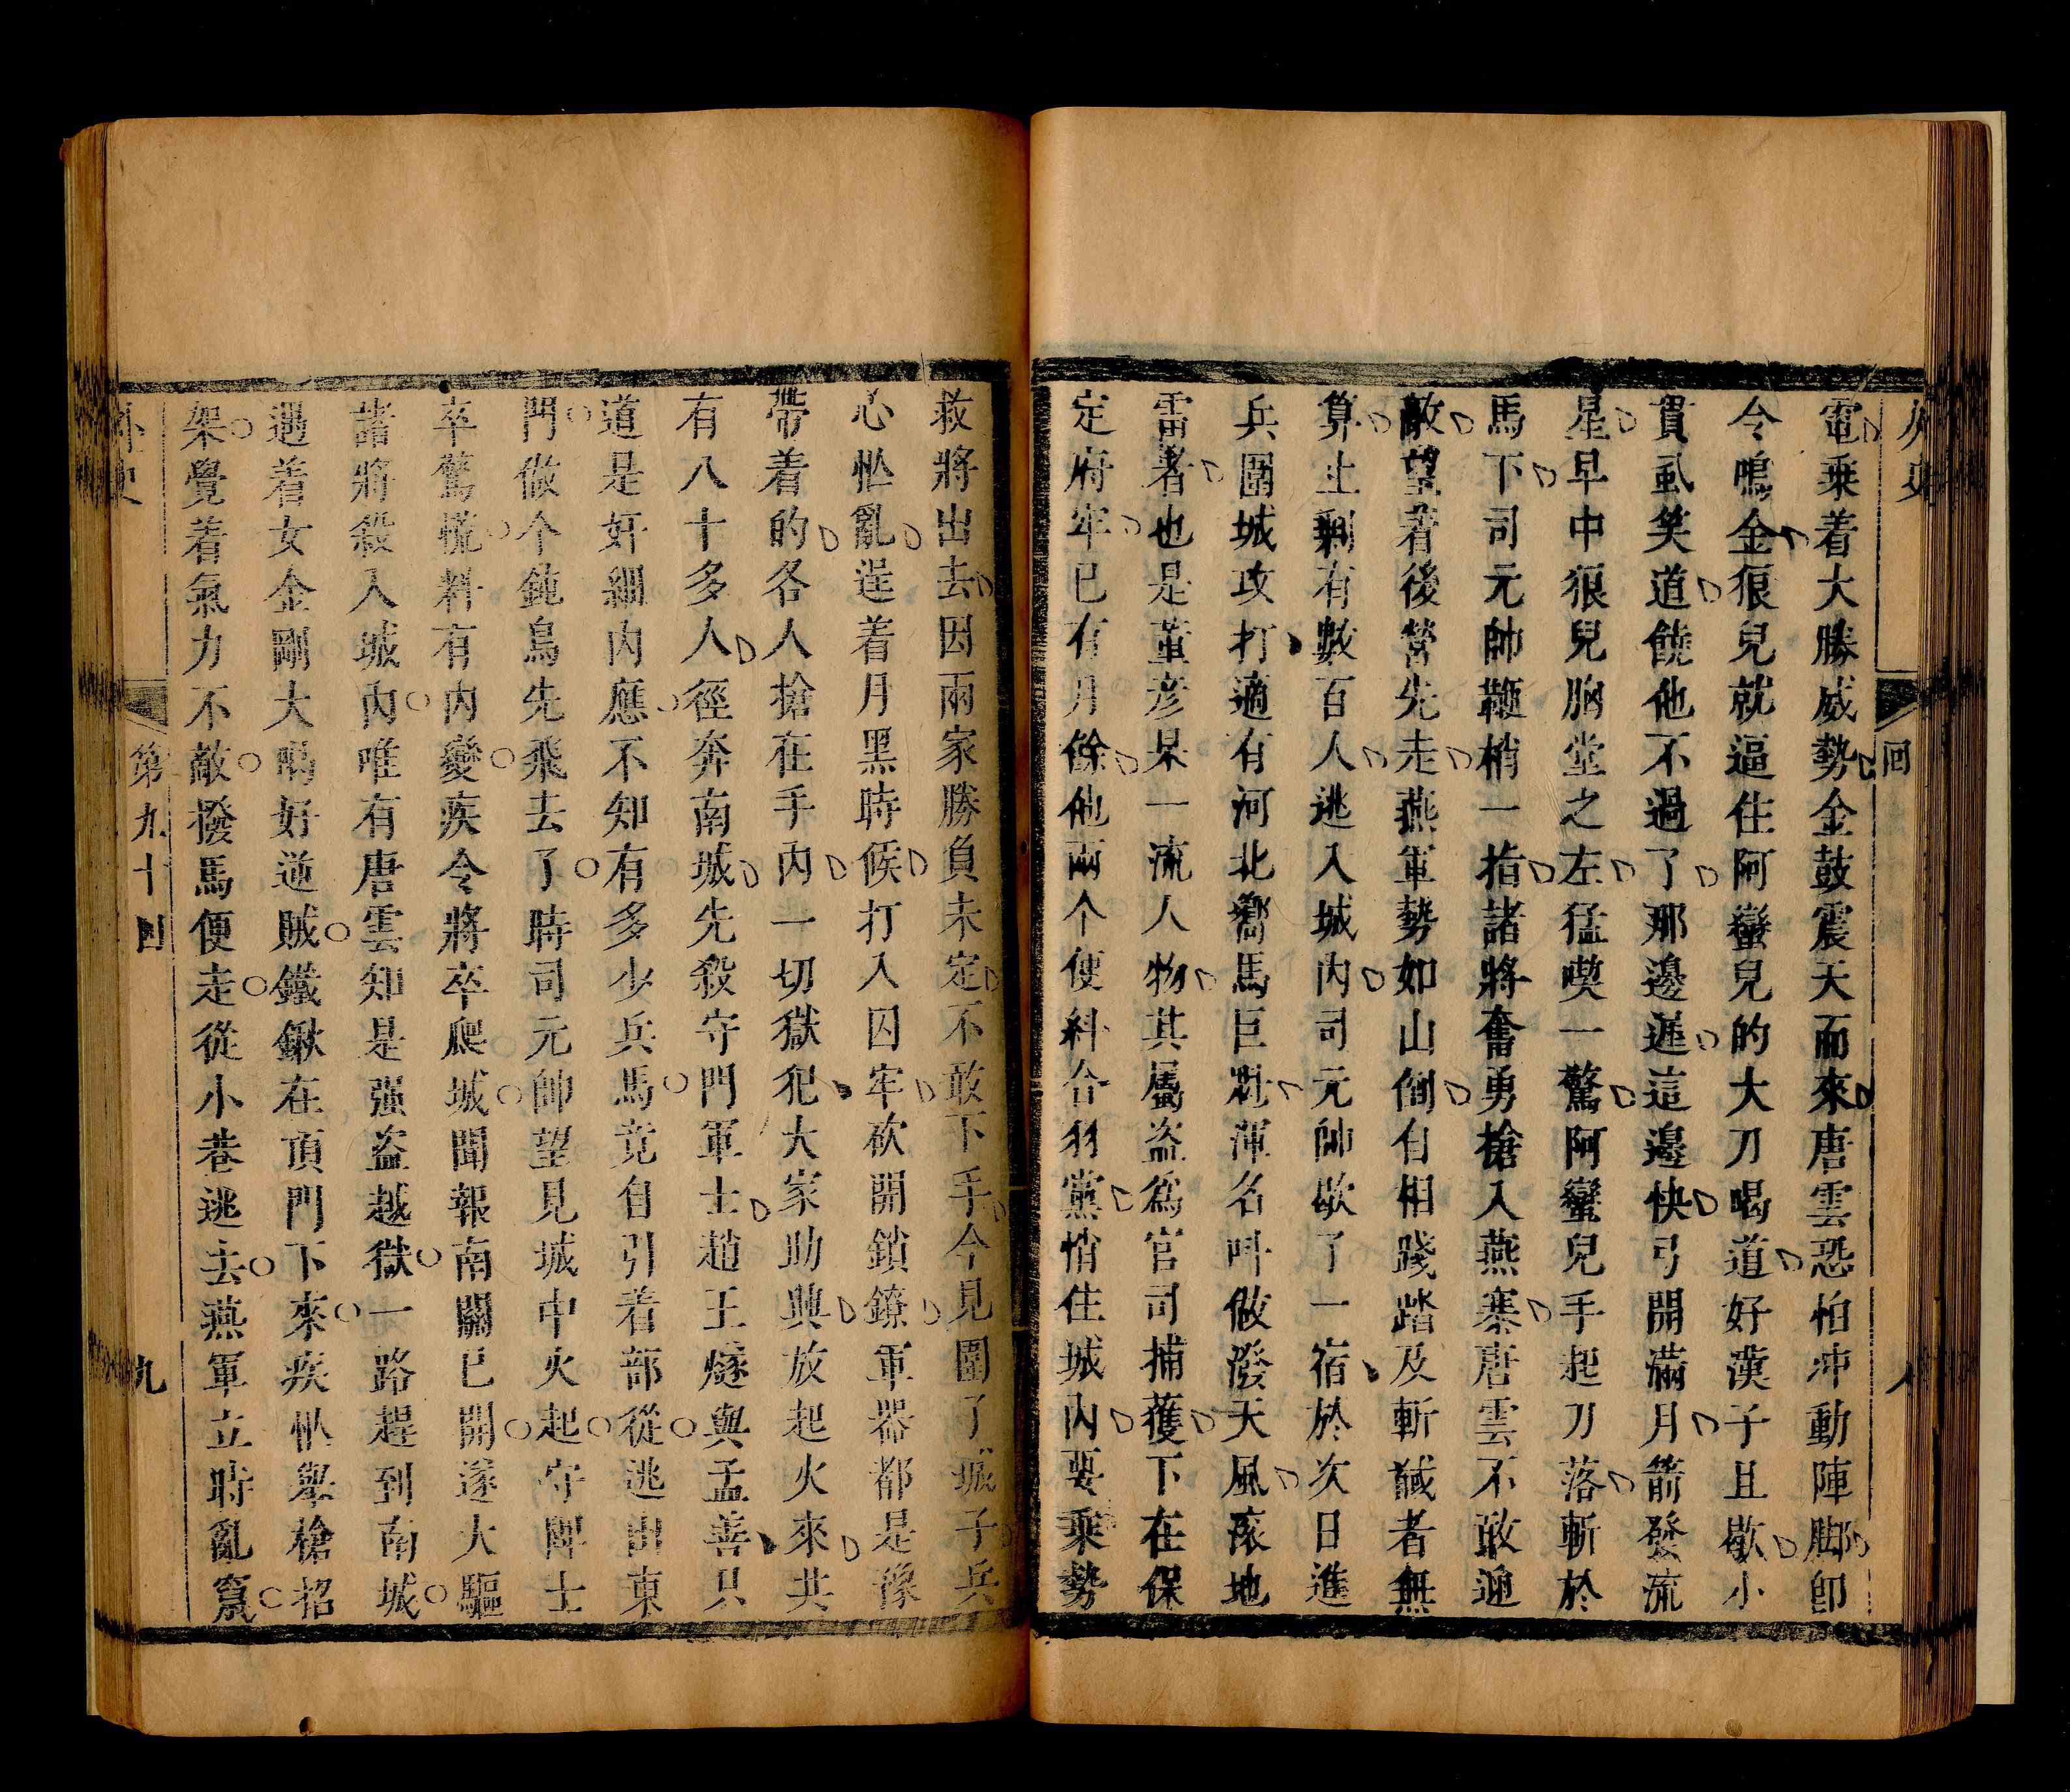 外史
回
八
電乗着大勝威勢金鼓震天而來唐雲恐怕冲動陣脚卽
令鳴金狠兒就逼住阿蠻兒的大刀喝道好漢子且歇小
貫虱笑道饒他不過了那邊遲這邊快弓開滿月箭發流
星早中狠兒胸堂之左猛喫一驚阿蠻兒手起刀落斬於
馬下司元帥鞭梢一指諸將奮勇搶入燕寨唐雲不敢迎
敵望着後營先走燕軍勢如山倒自相踐踏及斬馘者無
算止剩有數百人逃入城内司元帥歇了一宿於次日進
兵圍城攻打適有河北嚮馬巨魁渾名呌做潑天風滾地
雷者也是董彦杲一流人物其屬盗爲官司捕獲下在保
定府牢已有月餘他兩个便糾合羽黨悄住城内要乗勢
救將出去因兩家勝負未定不敢下手今見圍了城子兵
心忙亂逞着月黑時候打入囚牢砍開鎖鐐軍器都是豫
帶着的各人搶在手内一切獄犯大家助興放起火來共
有八十多人徑奔南城先殺守門軍士趙王燧與孟善只
道是奸細内應不知有多少兵馬竟自引着部從逃出東
門做个鈍鳥先飛去了時司元帥望見城中火起守陴士
卒驚慌料有内變疾令將卒爬城聞報南關已開遂大驅
諸將殺入城内唯有唐雲知是强盗越獄一路趕到南城
遇着女金剛大喝好逆賊鐵鍬在頂門下來疾忙舉槍招
架覺着氣力不敵撥馬便走從小巷逃去燕軍立時亂竄
外史
第九十回
九